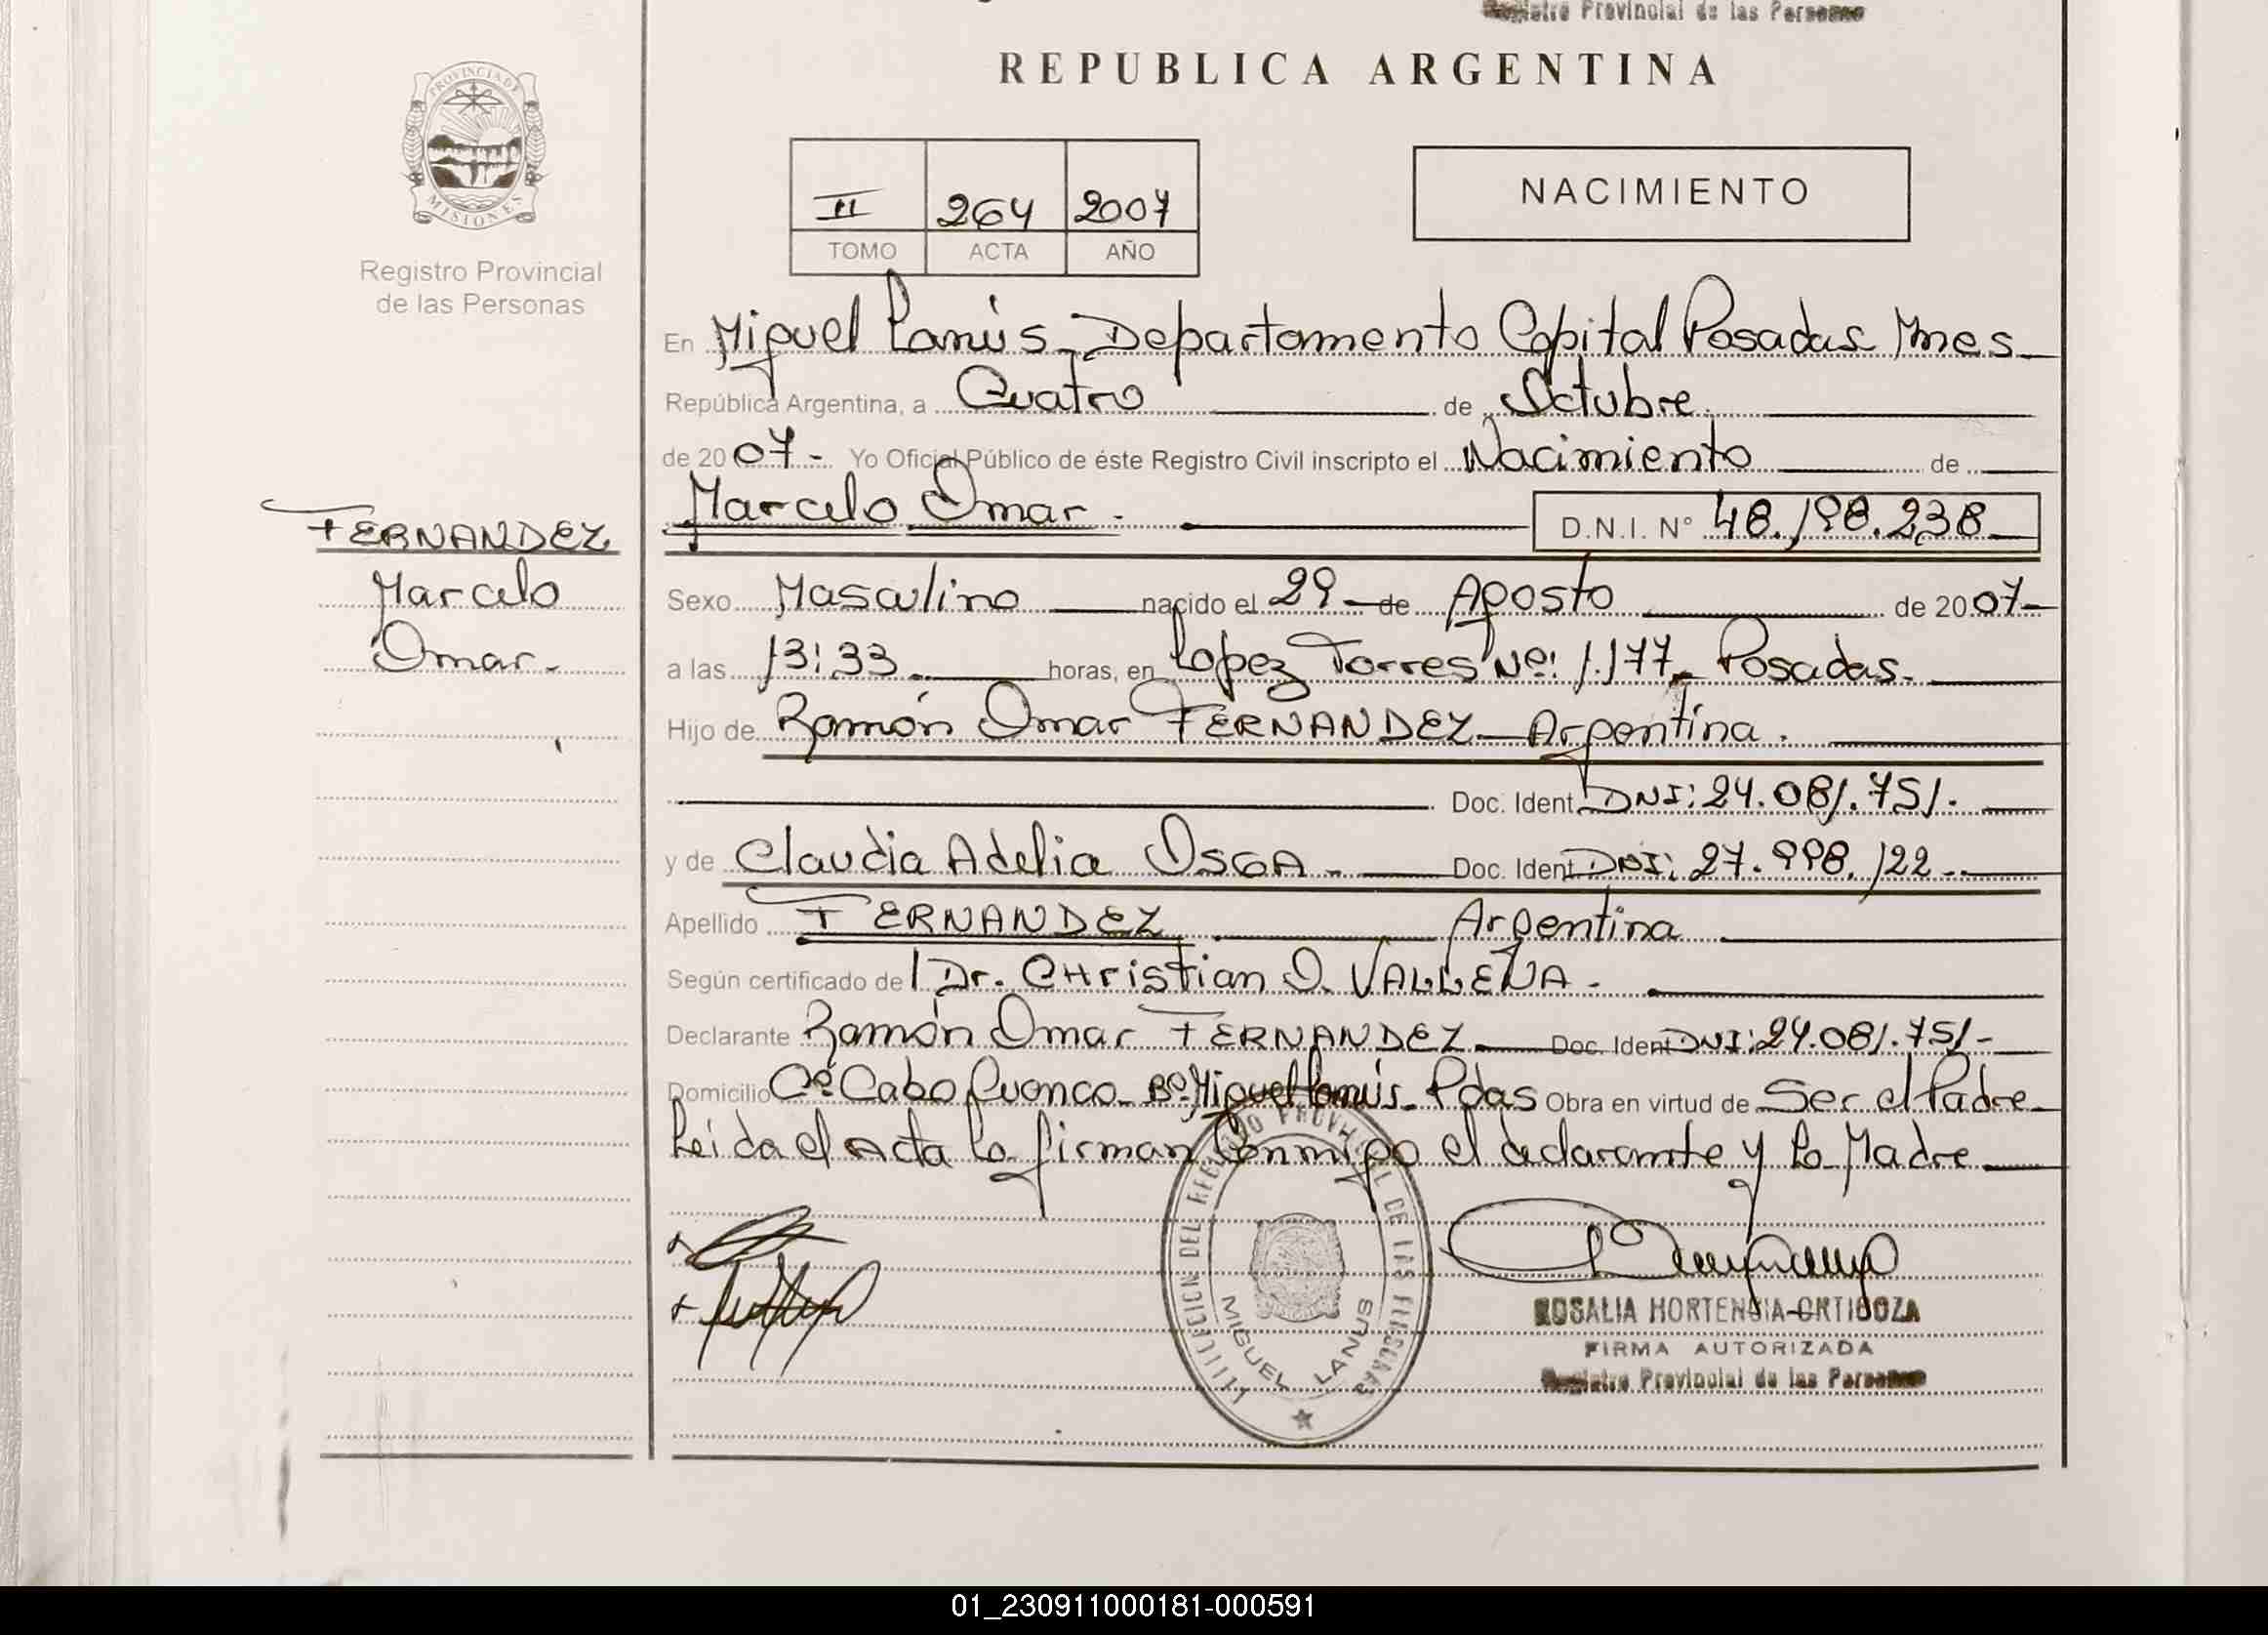 Registro Provincial de las Personas
REPUBLICA ARGENTINA
PROVINCIA DE
MISIONES
Registro Provincial
de las Personas
II 264 2007
TOMO ACTA AÑO
NACIMIENTO
En Miguel Lanús - Departamento Capital Posadas Mnes -
República Argentina, a Cuatro de Octubre
de 2007 - Yo Oficial Público de éste Registro Civil inscripto el Nacimiento de
Marcelo Omar - D.N.I. N° 48.198.238 -
FERNANDEZ
Marcelo
Omar -
Sexo Masculino nacido el 29 - de Agosto de 2007 -
a las 13:33 horas, en Lopez Torres Nº: 1.177 - Posadas -
Hijo de Ramón Omar FERNANDEZ - Argentina .
Doc. Ident. DNI: 24.081.751. -
y de Claudia Adelia OSGA - Doc. Ident. DNI: 27.998.122 -
Apellido FERNANDEZ Argentina
Según certificado de l Dr. CHristian O. VALLEJA -
Declarante Ramón Omar FERNANDEZ - Doc. Ident DNI: 24.081.751 -
Domicilio Cº Cabo Bº Miguel Lanús - Pdas Obra en virtud de Ser el Padre -
Leída el Acta la firman Conmigo el declarante y la Madre -
DEL REGISTRO PROVINCIAL DE LAS PERSONAS
MIGUEL LANUS
ROSALIA HORTENSIA ORTIGOZA
FIRMA AUTORIZADA
Registro Provincial de las Personas
01_230911000181-000591